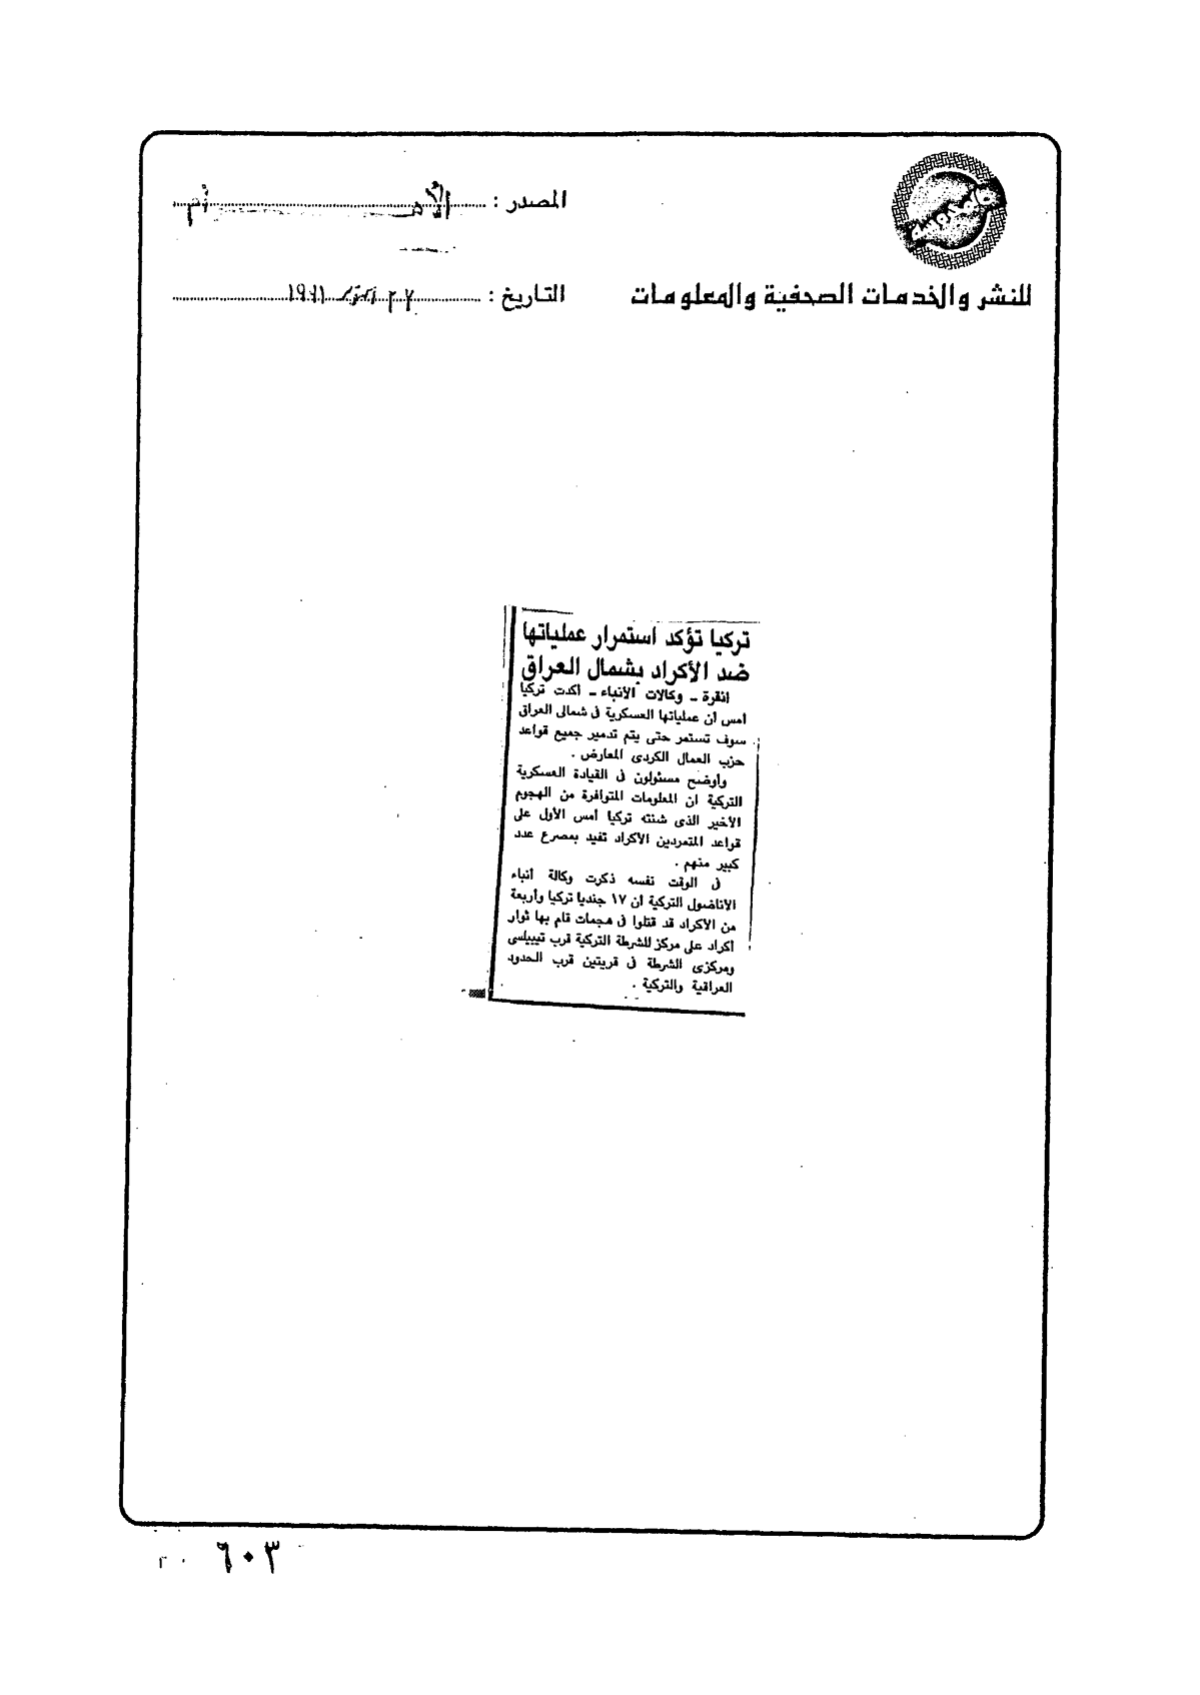 المصدر : الأهـــرام
للنشر والخدمات الصحفية والمعلومات
التاريخ : ٢٧ أكتوبر ١٩٩١
تركيا تؤكد استمرار عملياتها
ضد الأكراد بشمال العراق
انقرة ـ وكالات الأنباء ـ أكدت تركيا
أمس أن عملياتها العسكرية فى شمالى العراق
سوف تستمر حتى يتم تدمير جميع قواعد
حزب العمال الكردى المعارض .
وأوضح مسئولون فى القيادة العسكرية
التركية ان المعلومات المتوافرة من الهجوم
الأخير الذى شنته تركيا أمس الأول على
قواعد المتمردين الأكراد تفيد بمصرع عدد
كبير منهم .
فى الوقت نفسه ذكرت وكالة أنباء
الاناضول التركية ان ١٧ جنديا تركيا وأربعة
من الأكراد قد قتلوا فى هجمات قام بها ثوار
أكراد على مركز للشرطة التركية قرب تيبيلسى
ومركزى الشرطة فى قريتين قرب الحدود
العراقية والتركية .
٦٠٣